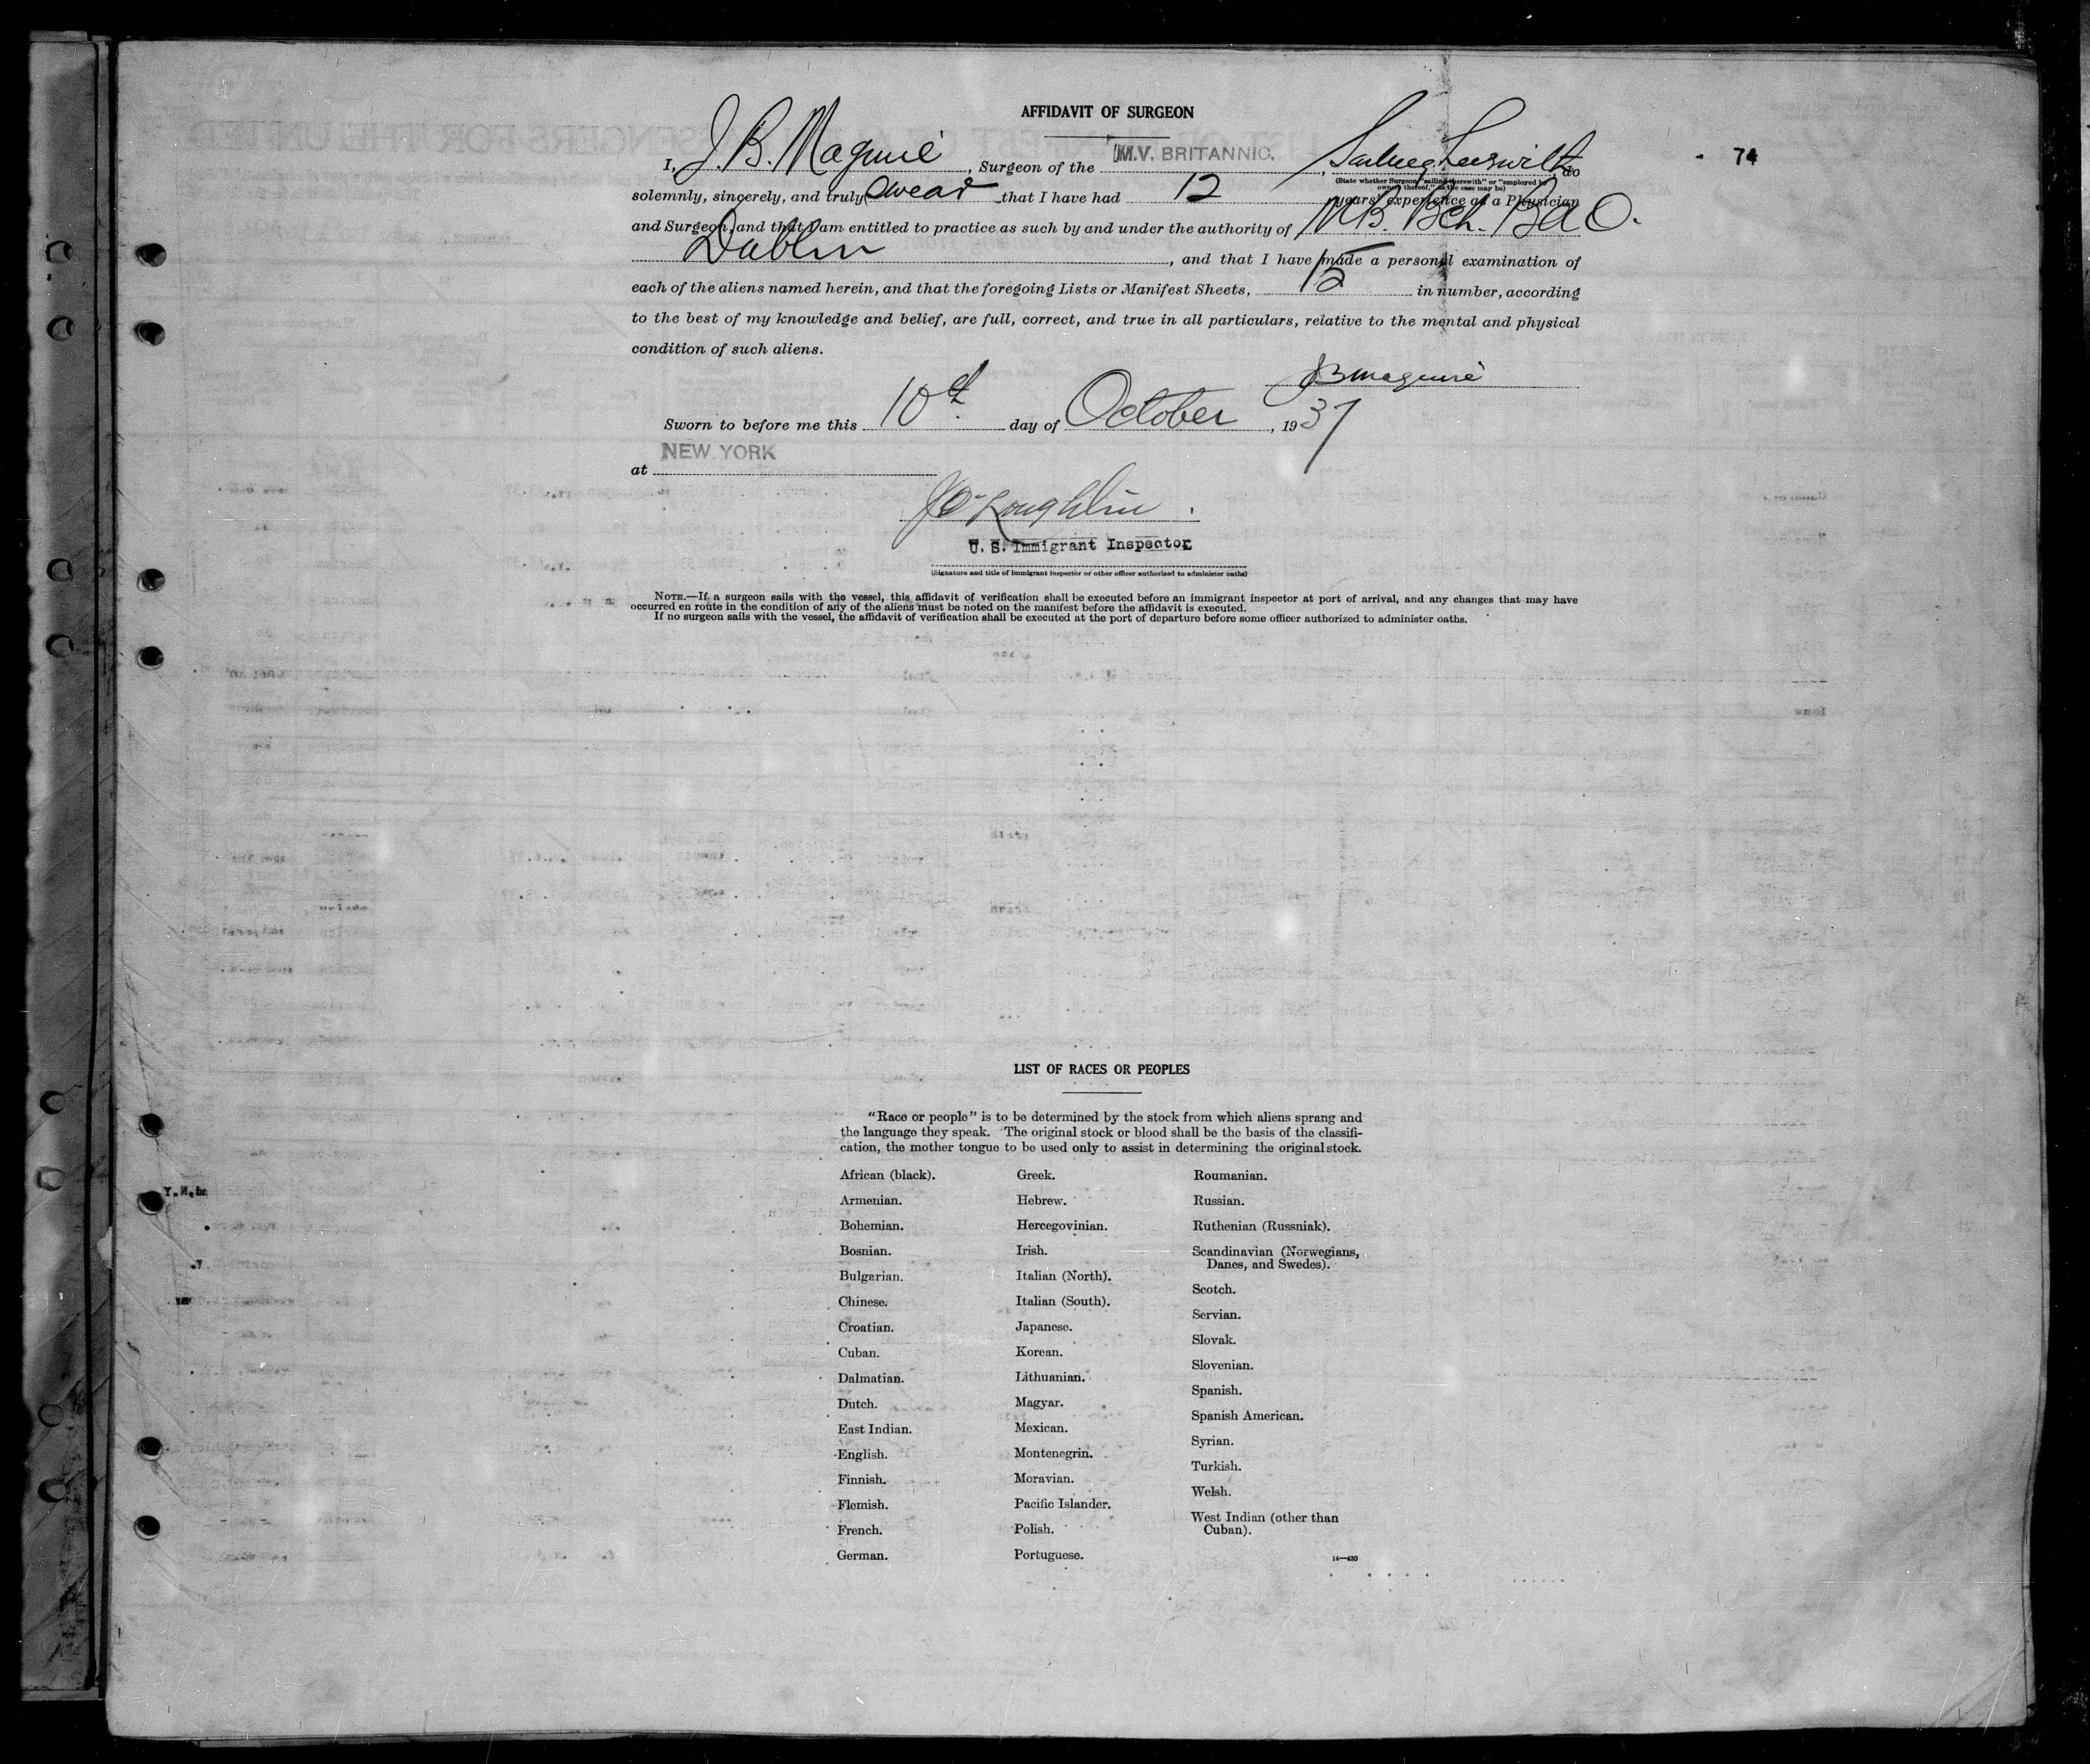 AFFIDAVIT OF SURGEON
74
I, J. B. Maguire, Surgeon of the M.V. BRITANNIC, Sailing therewith, do
(State whether Surgeon "sailing therewith" or "employed by owners thereof," as the case may be)
solemnly, sincerely, and truly swear that I have had 12 years' experience as a Physician
and Surgeon, and that I am entitled to practice as such by and under the authority of M.B. Bch. BAO.
Dublin, and that I have made a personal examination of
each of the aliens named herein, and that the foregoing Lists or Manifest Sheets, 15 in number, according
to the best of my knowledge and belief, are full, correct, and true in all particulars, relative to the mental and physical
condition of such aliens.
JB Maguire
Sworn to before me this 10th day of October, 1937
at NEW YORK
J O'Loughlin.
U. S. Immigrant Inspector
(Signature and title of immigrant inspector or other officer authorized to administer oaths)
NOTE.—If a surgeon sails with the vessel, this affidavit of verification shall be executed before an immigrant inspector at port of arrival, and any changes that may have
occurred en route in the condition of any of the aliens must be noted on the manifest before the affidavit is executed.
If no surgeon sails with the vessel, the affidavit of verification shall be executed at the port of departure before some officer authorized to administer oaths.
LIST OF RACES OR PEOPLES
"Race or people" is to be determined by the stock from which aliens sprang and
the language they speak. The original stock or blood shall be the basis of the classifi-
cation, the mother tongue to be used only to assist in determining the original stock.
African (black).
Armenian.
Bohemian.
Bosnian.
Bulgarian.
Chinese.
Croatian.
Cuban.
Dalmatian.
Dutch.
East Indian.
English.
Finnish.
Flemish.
French.
German.
Greek.
Hebrew.
Hercegovinian.
Irish.
Italian (North).
Italian (South).
Japanese.
Korean.
Lithuanian.
Magyar.
Mexican.
Montenegrin.
Moravian.
Pacific Islander.
Polish.
Portuguese.
Roumanian.
Russian.
Ruthenian (Russniak).
Scandinavian (Norwegians,
Danes, and Swedes).
Scotch.
Servian.
Slovak.
Slovenian.
Spanish.
Spanish American.
Syrian.
Turkish.
Welsh.
West Indian (other than
Cuban).
14—430